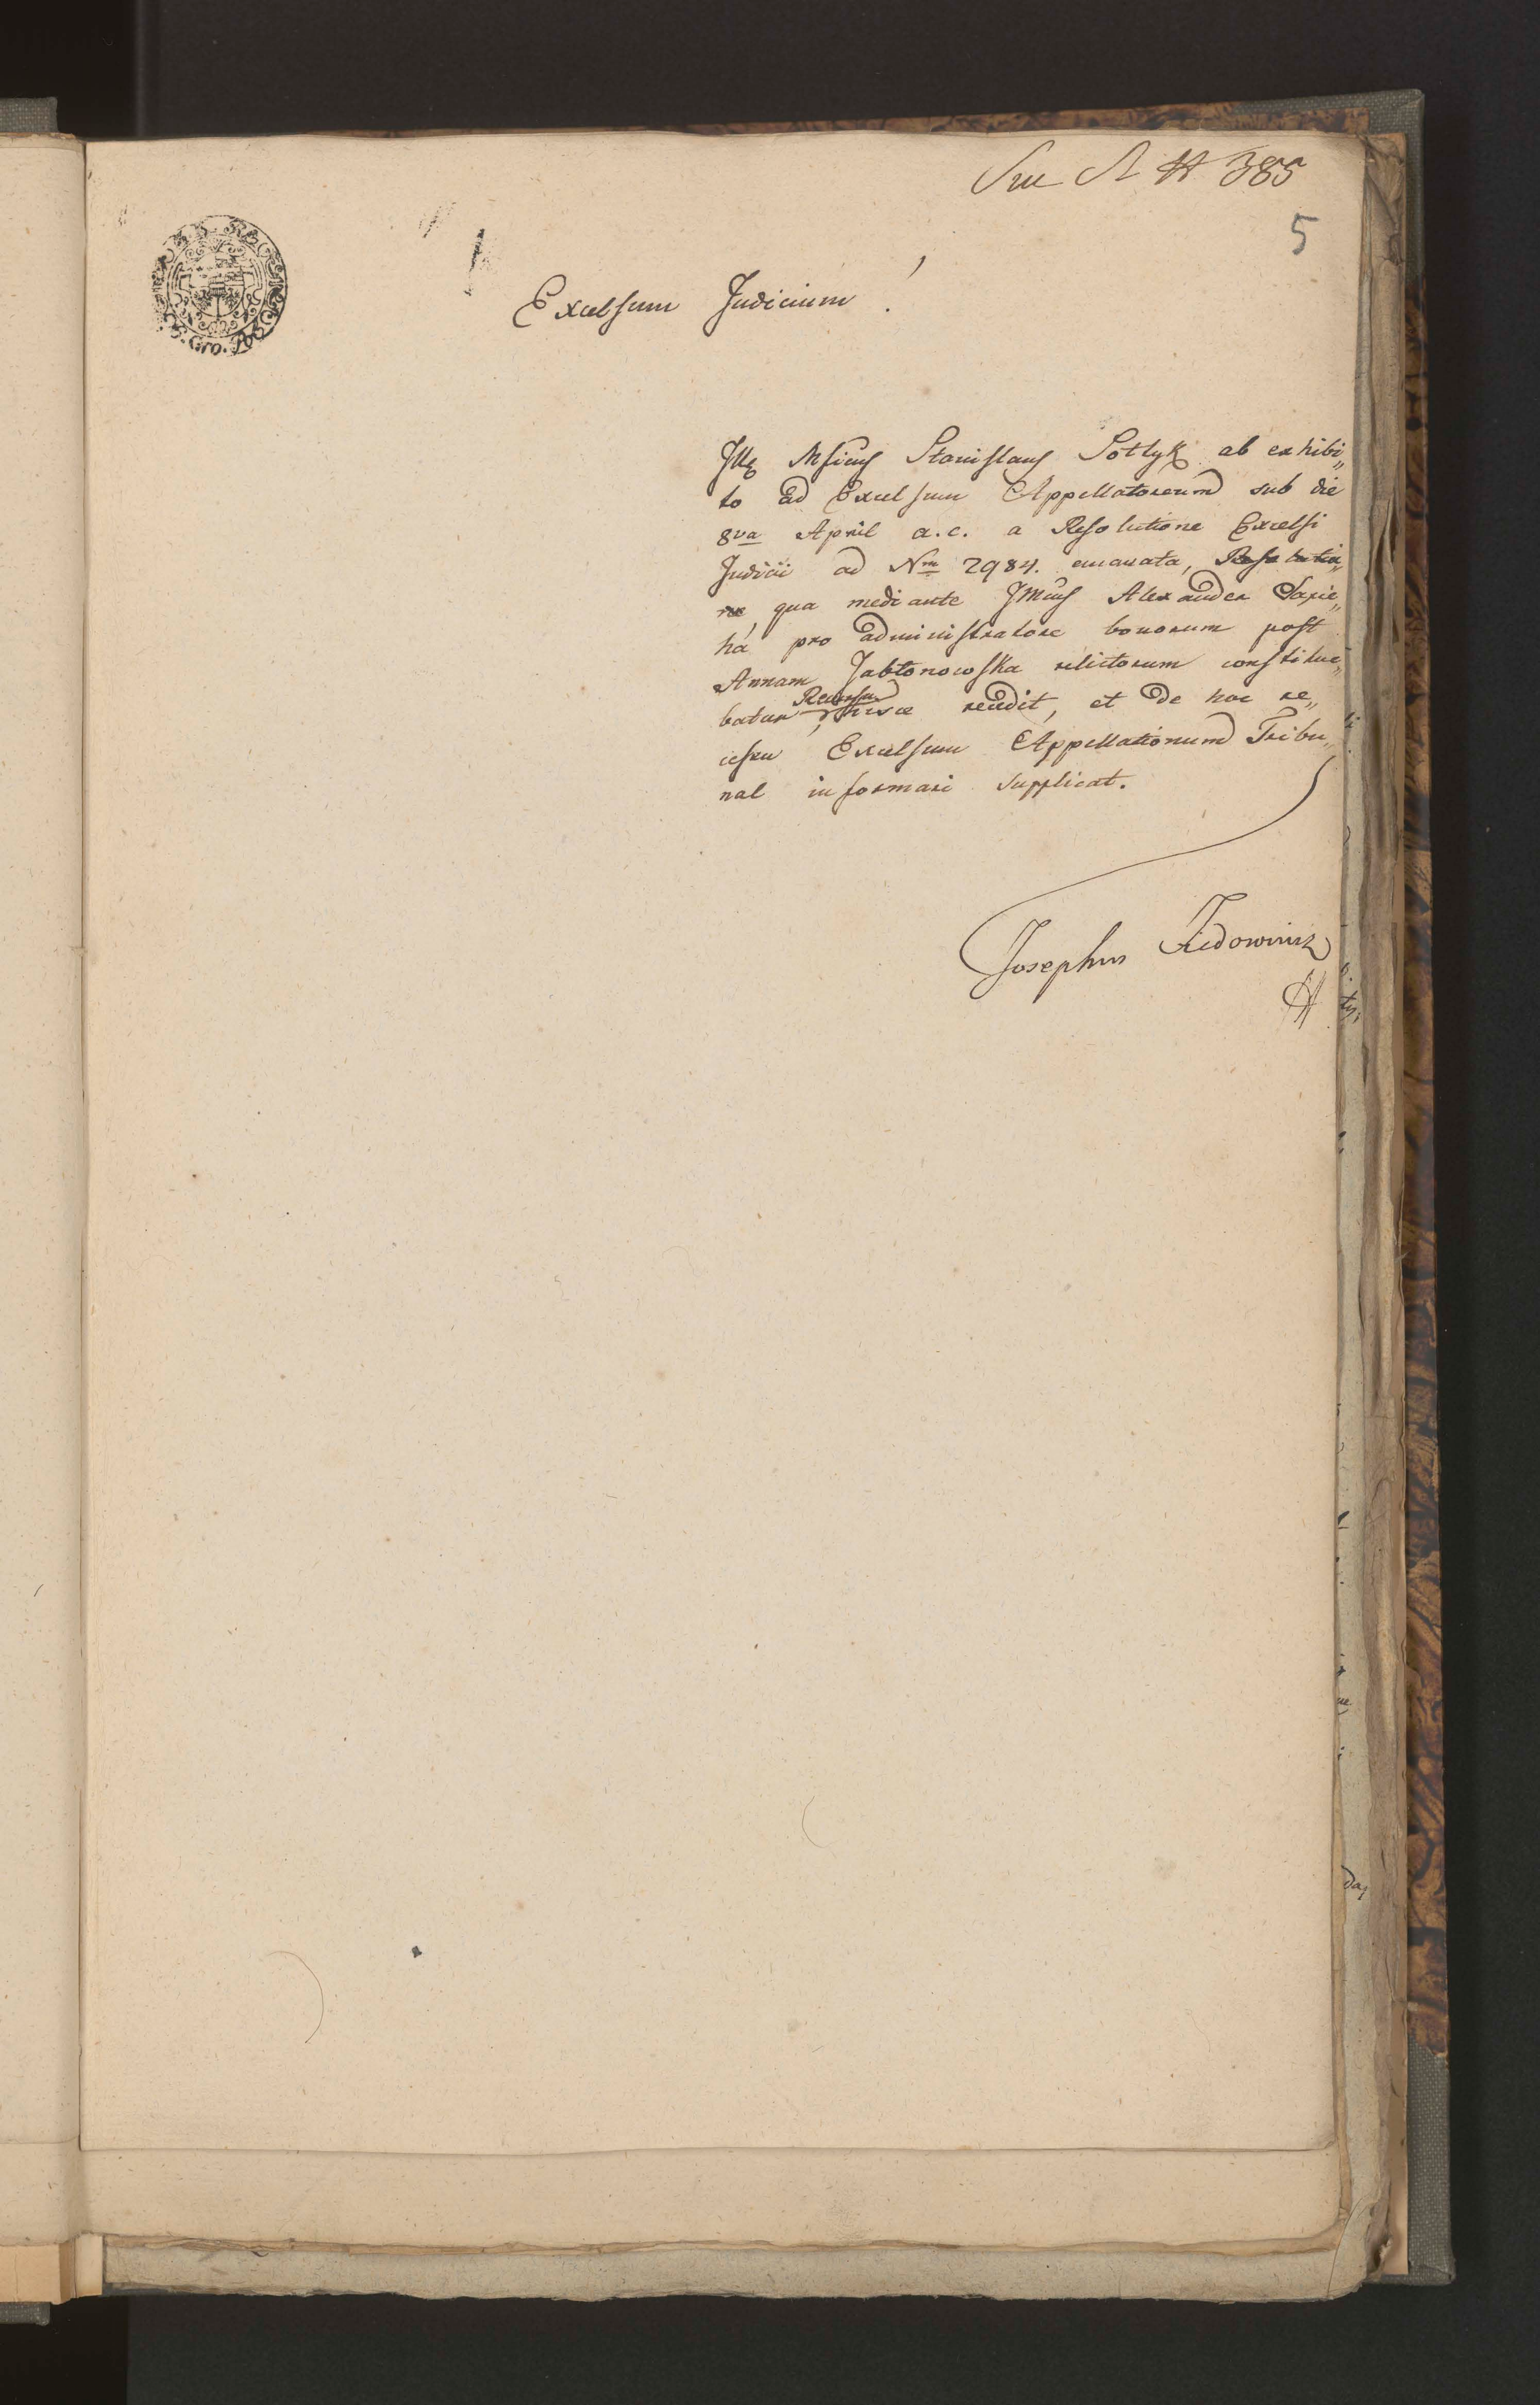 385
5
Excelsum Judicium!
Stanislaus Sołtyk ab exhibi„
to ad Excelsum Appellatorium sub die
8va April a.c. a Resolutione Excelsi
Judicii ad Nm 2984. emanata, Resolutio„
ne, qua mediante Alexander Sapie„
ha pro administratore bonorum post
Annam Jabłonowska relictorum constitue„
batur, Recursu hisce recedit, et de hoc re„
cessu Excelsum Appellationum Tribu„
nal informari supplicat.
Josephus